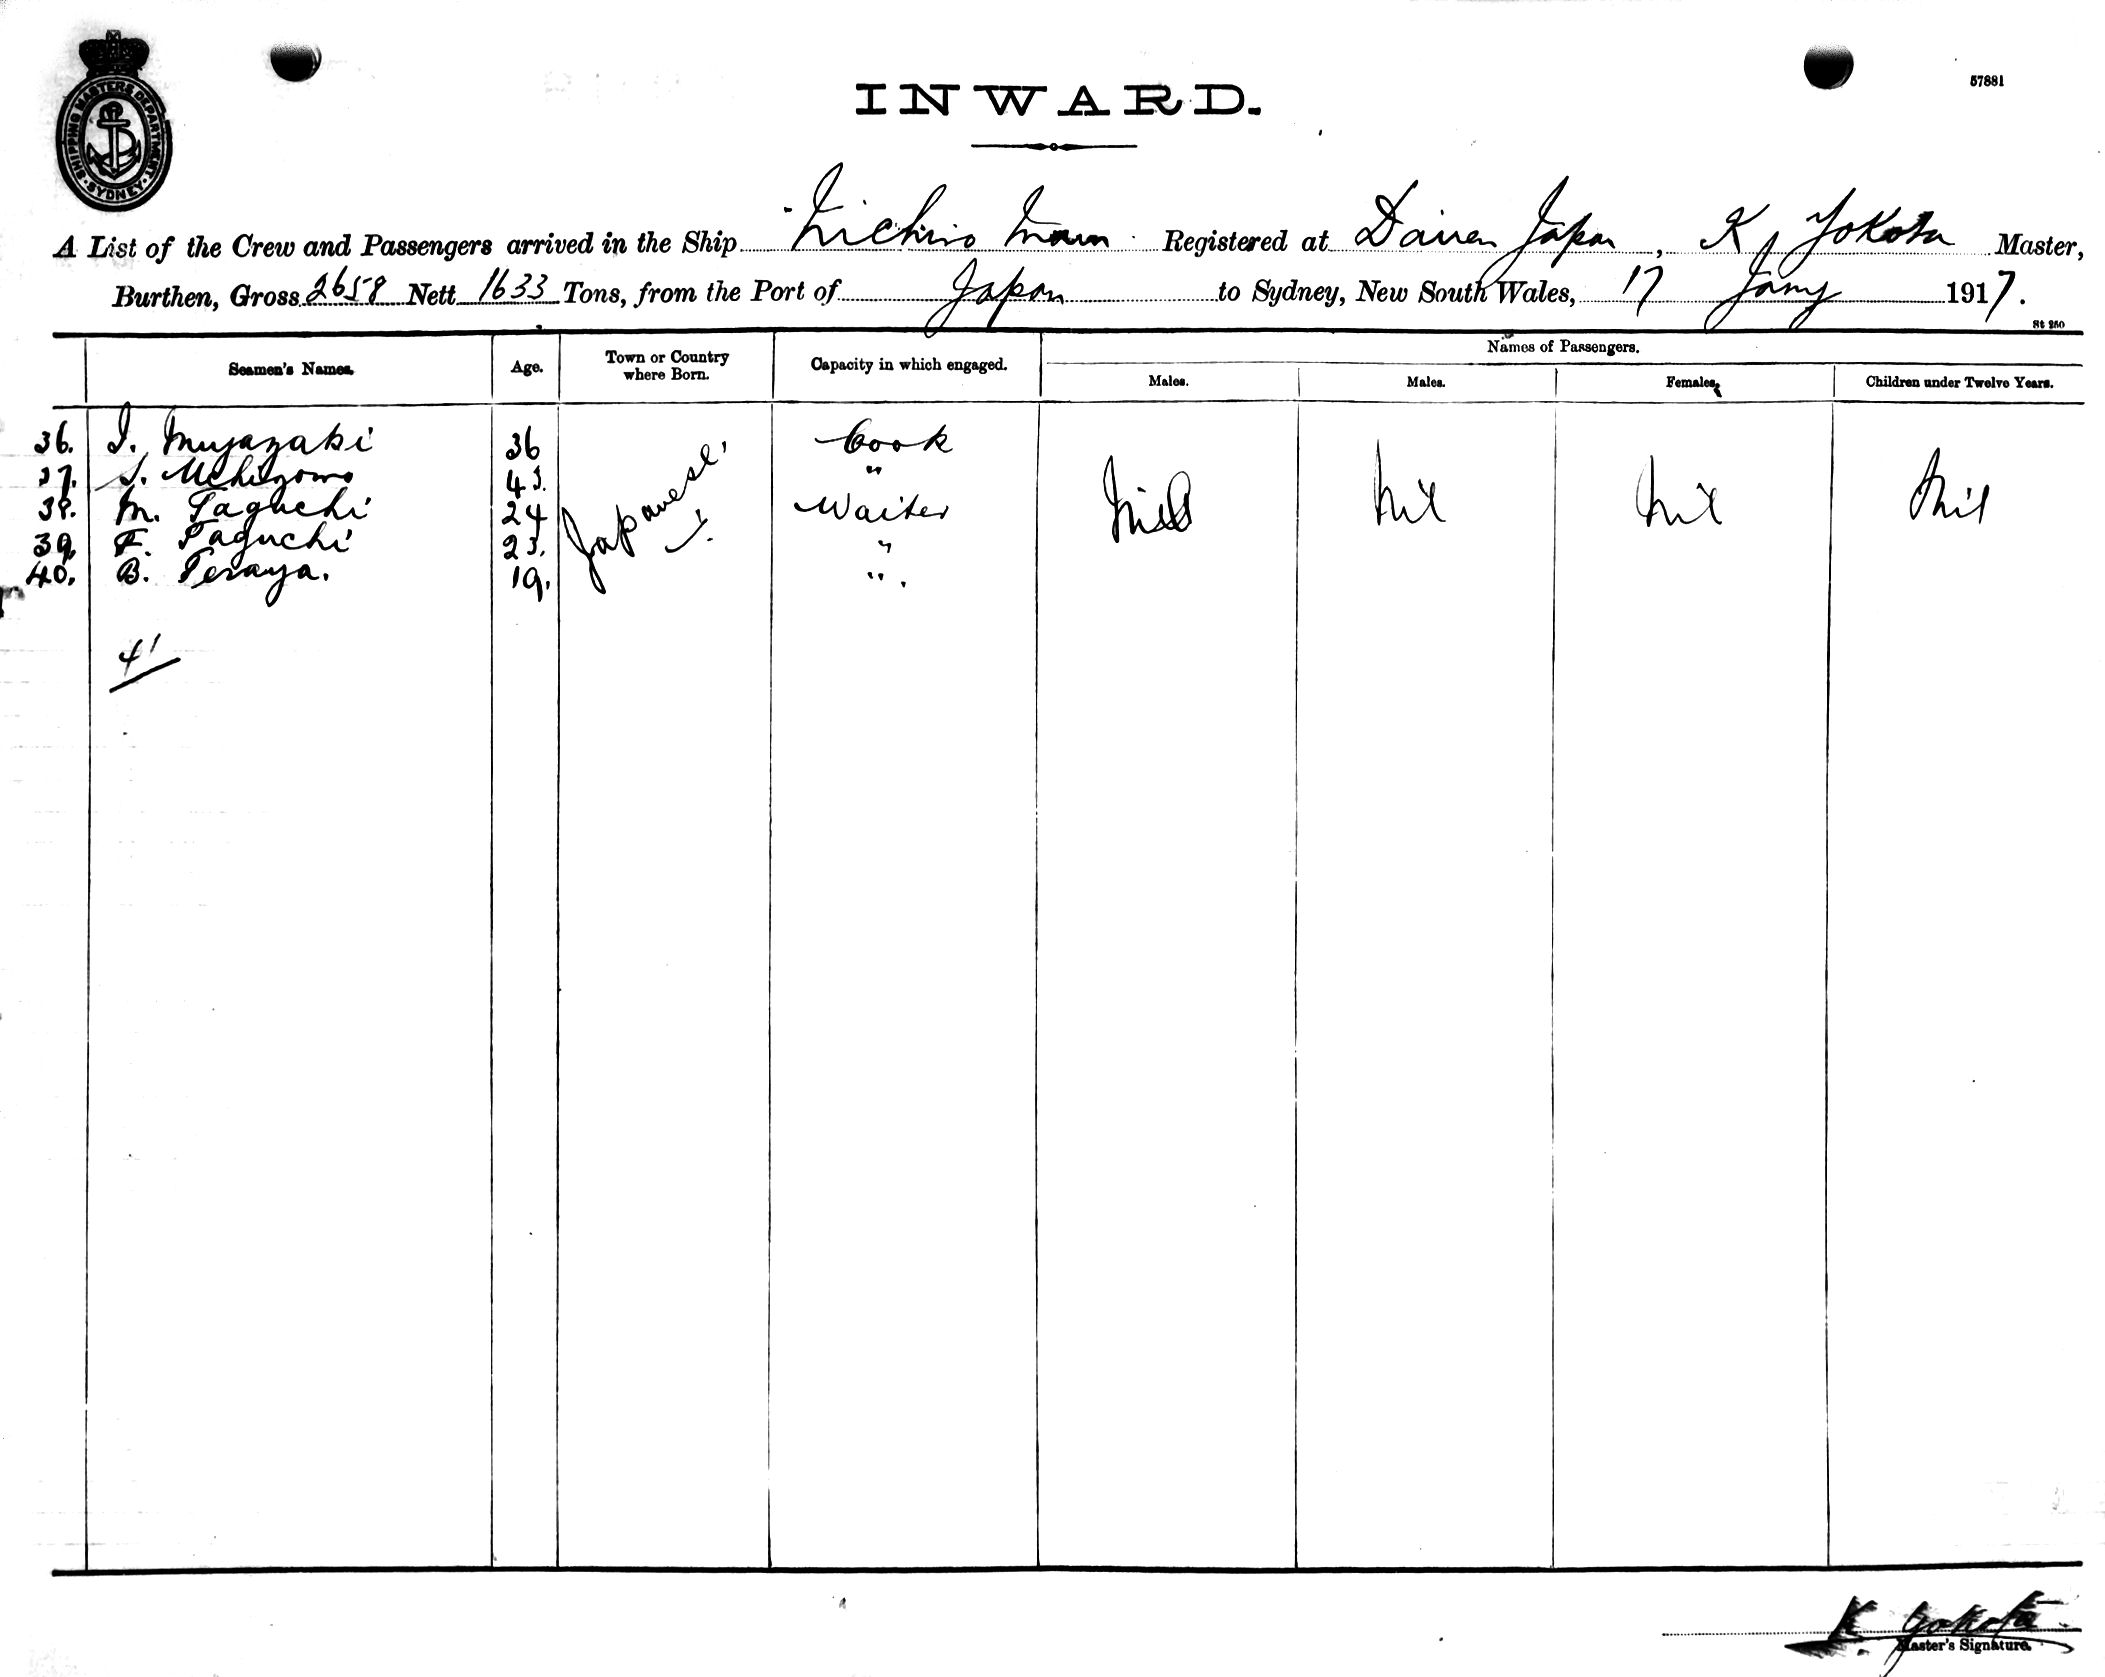 SHIPPING MASTERS DEPARTMENT
SYDNEY
INWARD.
57881
A List of the Crew and Passengers arrived in the Ship Nichiro Maru Registered at Dairen Japan, K Yokota Master,
Burthen, Gross 2658 Nett 1633 Tons, from the Port of Japan to Sydney, New South Wales, 17 Jany 1917.
St 250
Seamen's Names. Age. Town or Country where Born. Capacity in which engaged. Names of Passengers.
Males. Males. Females. Children under Twelve Years.
36. I. Miyazaki 36 Japanese Cook Nil Nil Nil Nil
37. S. 43. "
38. M. Taguchi 24 Waiter
39. F. Taguchi 23. "
40. B. Teraya. 19. ".
41
K. Yokota
Master's Signature.